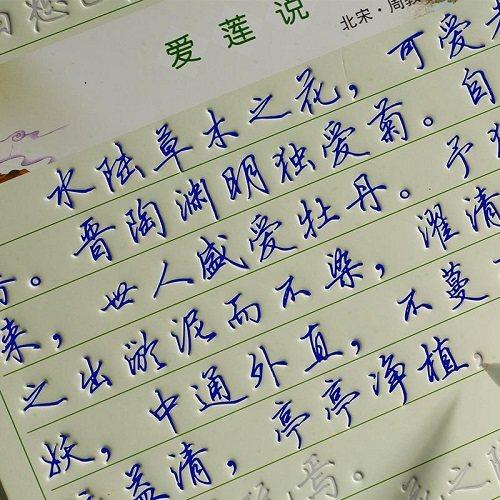 爱莲说
北宋·周敦
水陆草木之花，可爱者
晋陶渊明独爱菊。自
来，世人盛爱牡丹。予
之出淤泥而不染，濯清
妖，中通外直，不蔓
益清，亭亭净植，
焉。